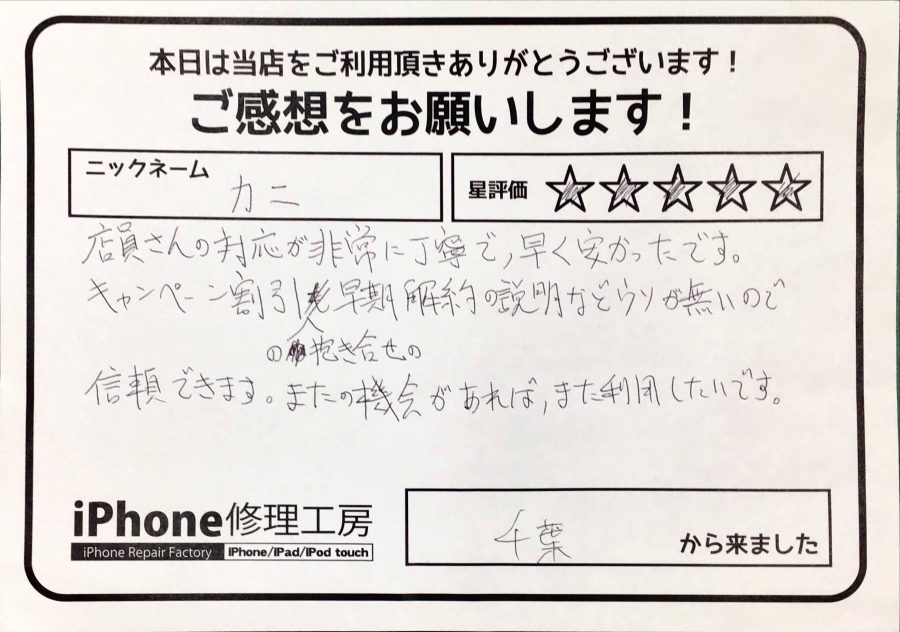 本日は当店をご利用頂きありがとうございます！
ご感想をお願いします！
ニックネーム
カニ
星評価
店員さんの対応が非常に丁寧で，早く安かったです。
キャンペーン割引 早期解約の説明などウソが無いので
の 抱き合せの
信頼できます。またの機会があれば，また利用したいです。
iPhone修理工房
iPhone Repair Factory iPhone/iPad/iPod touch
千葉
から来ました